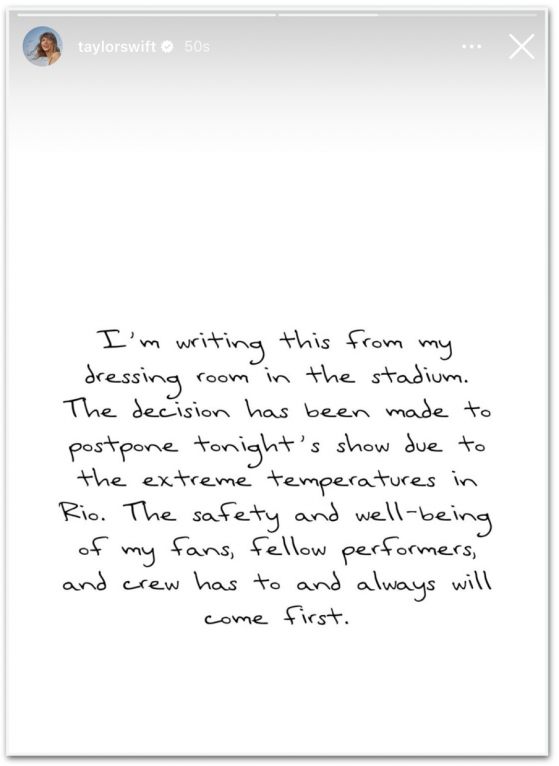 taylorswift 50s
I'm writing this from my
dressing room in the stadium.
The decision has been made to
postpone tonight's show due to
the extreme temperatures in
Rio. The safety and well-being
of my fans, fellow performers,
and crew has to and always will
come first.